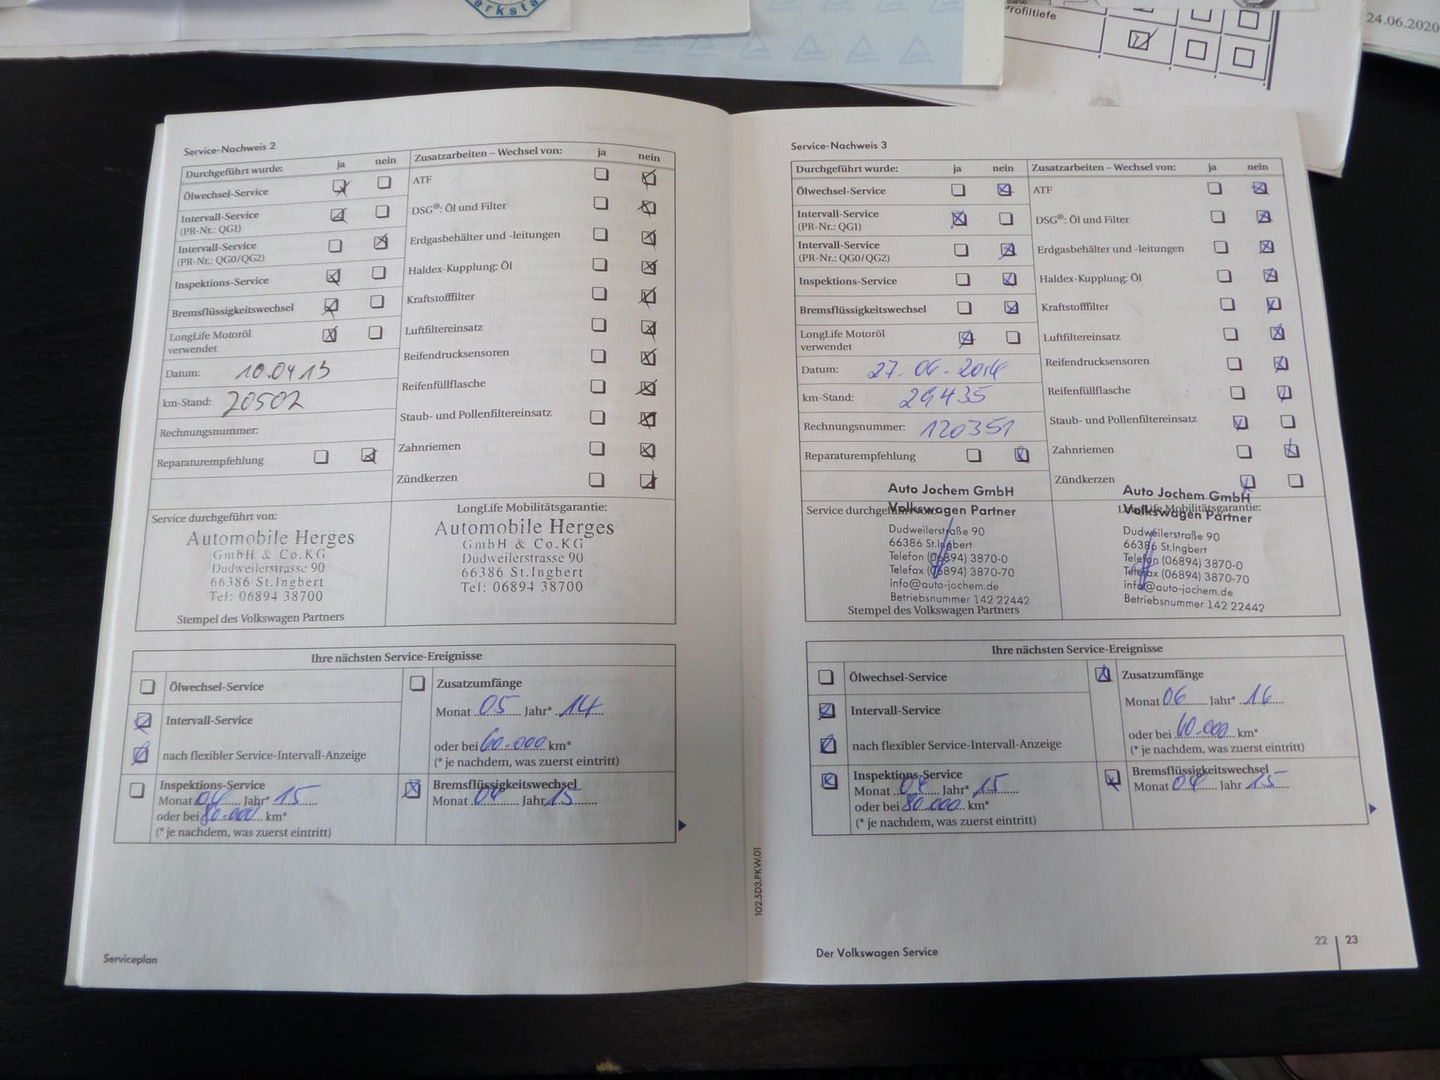 erksta
Profiltiefe
24.06.2020
Service-Nachweis 2
Durchgeführt wurde: ja nein
Ölwechsel-Service
Intervall-Service
(PR-Nr.: QG1)
Intervall-Service
(PR-Nr.: QG0/QG2)
Inspektions-Service
Bremsflüssigkeitswechsel
LongLife Motoröl
verwendet
Datum: 10.04.13
km-Stand: 20502
Rechnungsnummer:
Reparaturempfehlung
Zusatzarbeiten – Wechsel von: ja nein
ATF
DSG®: Öl und Filter
Erdgasbehälter und -leitungen
Haldex-Kupplung: Öl
Kraftstofffilter
Luftfiltereinsatz
Reifendrucksensoren
Reifenfüllflasche
Staub- und Pollenfiltereinsatz
Zahnriemen
Zündkerzen
Service durchgeführt von:
Automobile Herges
GmbH & Co.KG
Dudweilerstrasse 90
66386 St.Ingbert
Tel: 06894 38700
Stempel des Volkswagen Partners
LongLife Mobilitätsgarantie:
Automobile Herges
GmbH & Co.KG
Dudweilerstrasse 90
66386 St.Ingbert
Tel: 06894 38700
Ihre nächsten Service-Ereignisse
Ölwechsel-Service
Intervall-Service
nach flexibler Service-Intervall-Anzeige
Zusatzumfänge
Monat 05 Jahr* 14
oder bei 60.000 km*
(* je nachdem, was zuerst eintritt)
Inspektions-Service
Monat 04 Jahr* 15
oder bei 80.000 km*
(* je nachdem, was zuerst eintritt)
Bremsflüssigkeitswechsel
Monat 04 Jahr 15
Serviceplan
102.5D3.PKW.01
Service-Nachweis 3
Durchgeführt wurde: ja nein
Ölwechsel-Service
Intervall-Service
(PR-Nr.: QG1)
Intervall-Service
(PR-Nr.: QG0/QG2)
Inspektions-Service
Bremsflüssigkeitswechsel
LongLife Motoröl
verwendet
Datum: 27.06.2014
km-Stand: 29435
Rechnungsnummer: 120351
Reparaturempfehlung
Zusatzarbeiten – Wechsel von: ja nein
ATF
DSG®: Öl und Filter
Erdgasbehälter und -leitungen
Haldex-Kupplung: Öl
Kraftstofffilter
Luftfiltereinsatz
Reifendrucksensoren
Reifenfüllflasche
Staub- und Pollenfiltereinsatz
Zahnriemen
Zündkerzen
Service durchgeführt von:
Auto Jochem GmbH
Volkswagen Partner
Dudweilerstraße 90
66386 St.Ingbert
Telefon (06894) 3870-0
Telefax (06894) 3870-70
info@auto-jochem.de
Betriebsnummer 142 22442
Stempel des Volkswagen Partners
LongLife Mobilitätsgarantie:
Auto Jochem GmbH
Volkswagen Partner
Dudweilerstraße 90
66386 St.Ingbert
Telefon (06894) 3870-0
Telefax (06894) 3870-70
info@auto-jochem.de
Betriebsnummer 142 22442
Ihre nächsten Service-Ereignisse
Ölwechsel-Service
Intervall-Service
nach flexibler Service-Intervall-Anzeige
Zusatzumfänge
Monat 06 Jahr* 16
oder bei 60.000 km*
(* je nachdem, was zuerst eintritt)
Inspektions-Service
Monat 04 Jahr* 15
oder bei 80.000 km*
(* je nachdem, was zuerst eintritt)
Bremsflüssigkeitswechsel
Monat 04 Jahr 15
Der Volkswagen Service
22 | 23